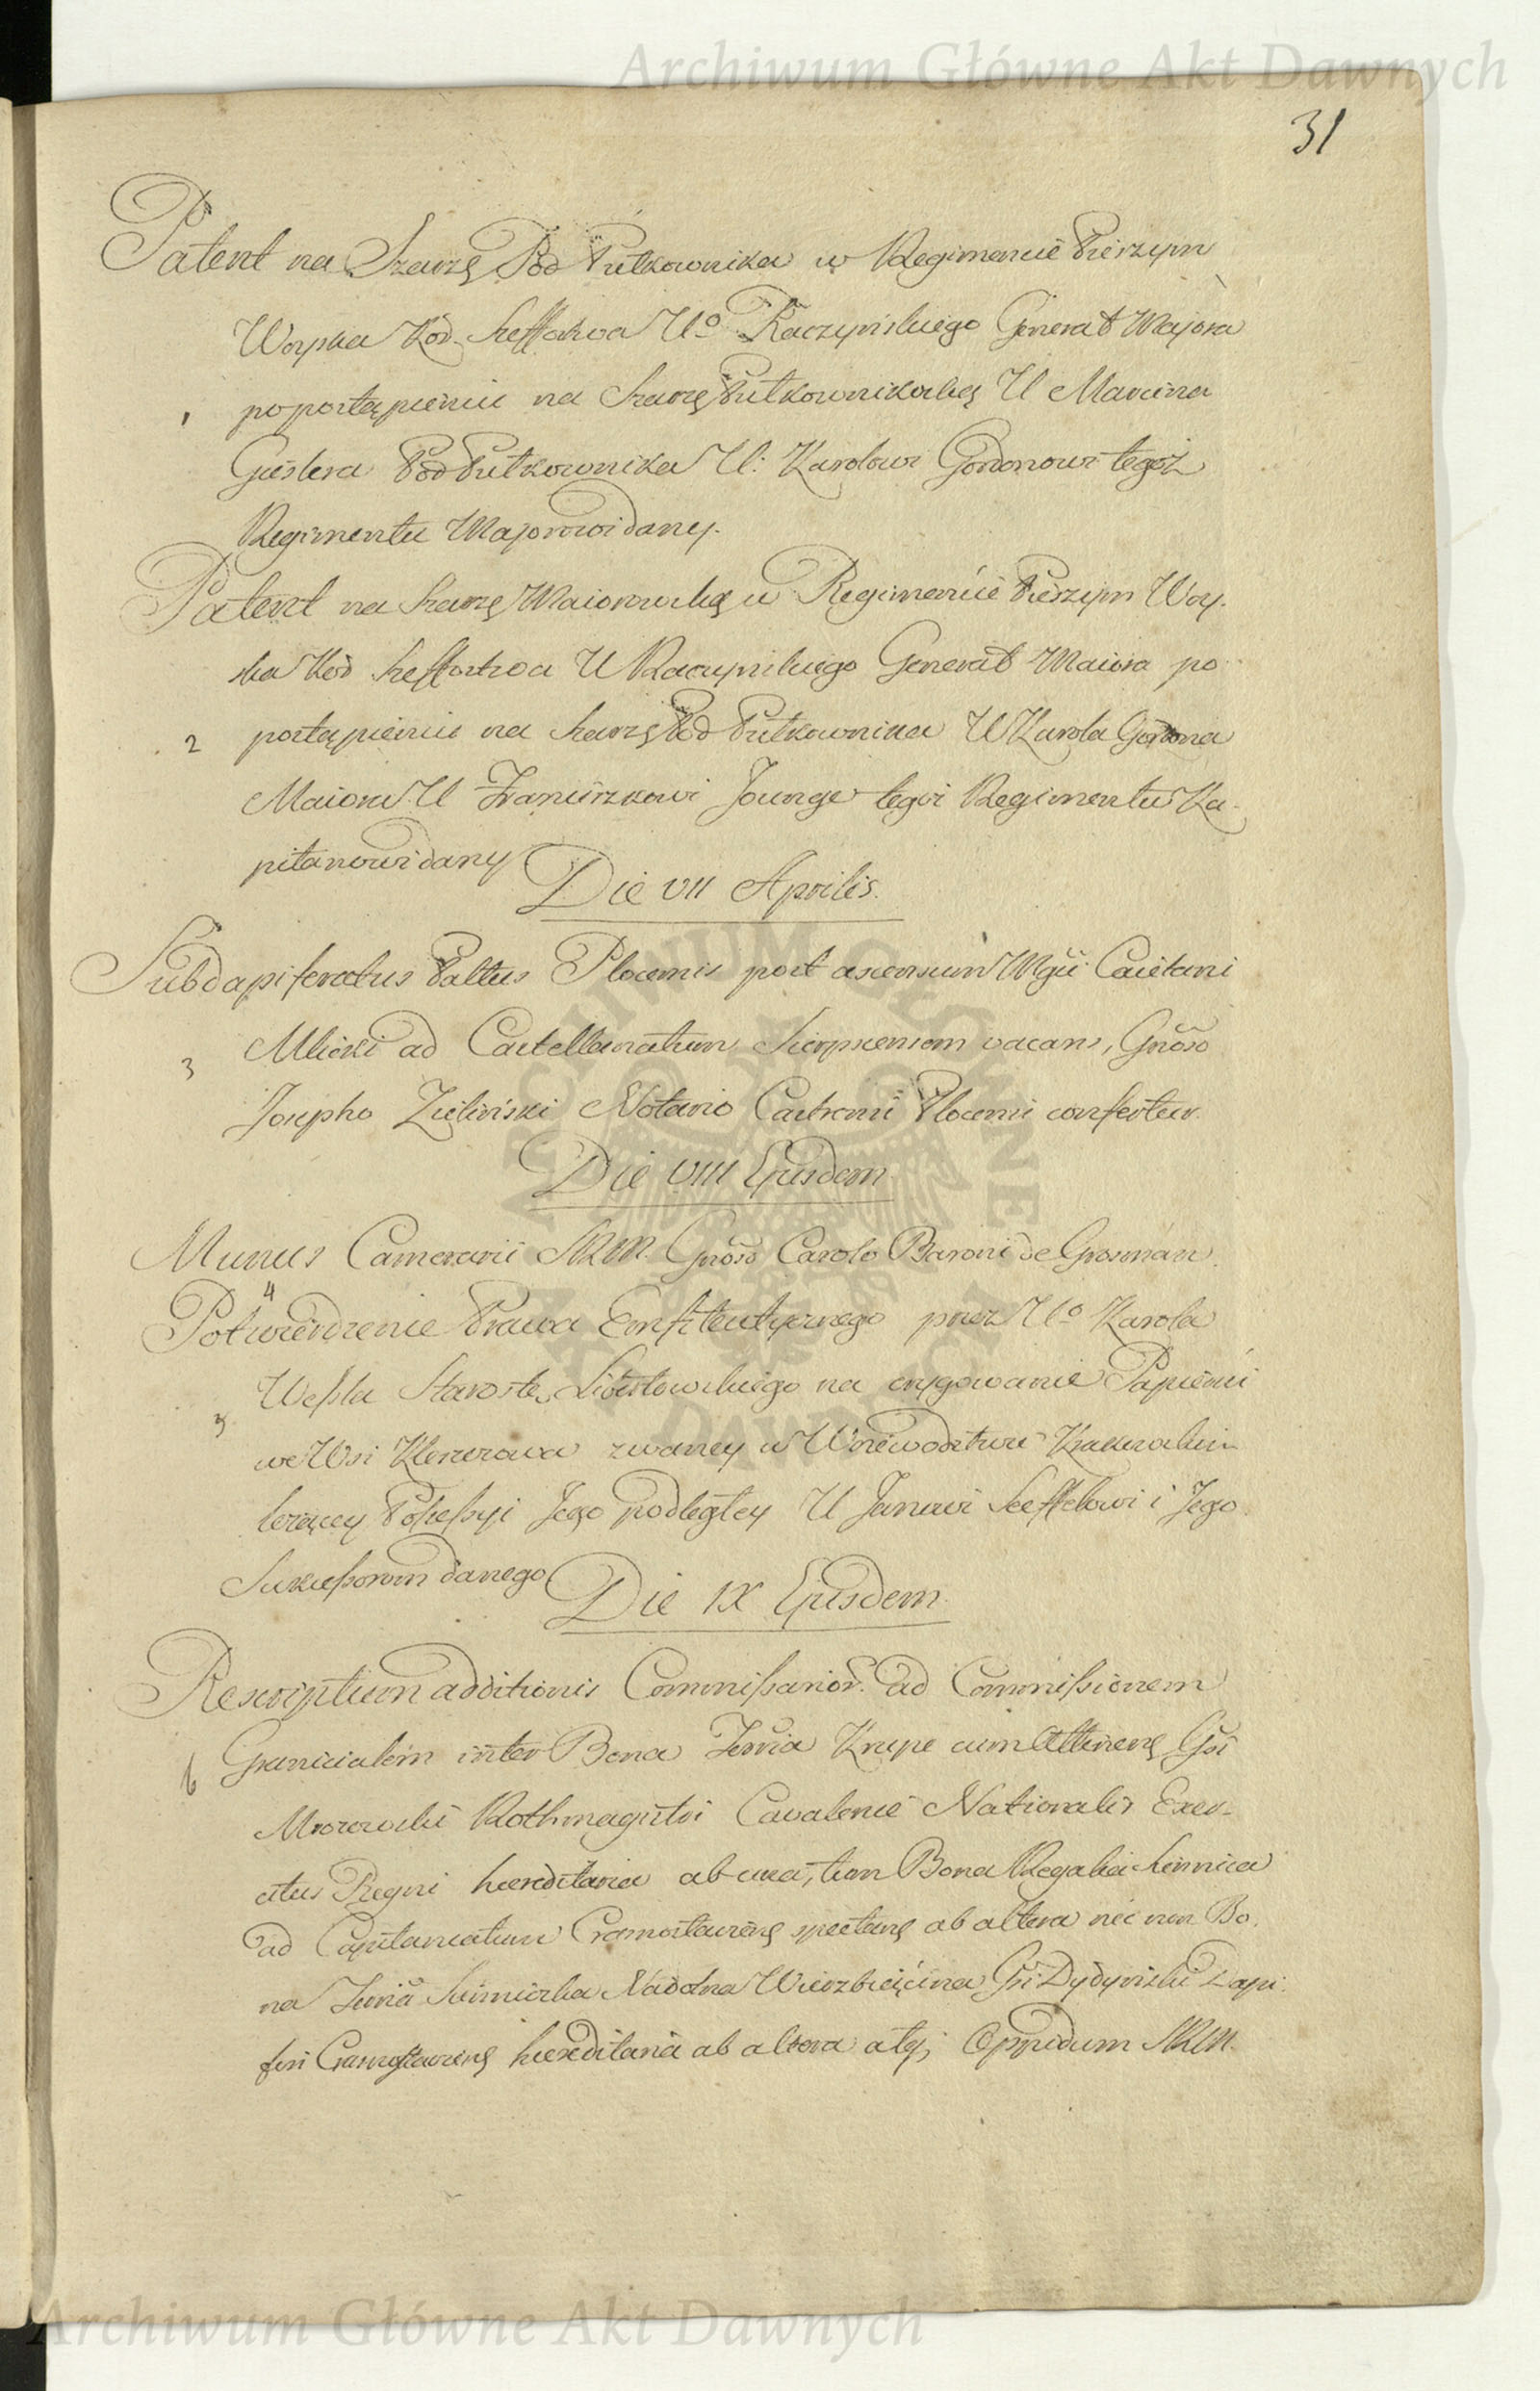 Archiwum Główne Akt Dawnych
31
Patent na Szarzę Pod Pułkownika w Regimencie Pieszym
Woyska Kor. Szeffostwa Uo Raczyńskiego Generał Majora
1 po postąpieniu na Szarżę Pułkownikowską U Marcina
Gieslera Pod Pułkownika U: Karolowi Gordonowi tegoż
Regimentu Majorowi dany.
Patent na Szarzę Maiorowską w Regimencie Pieszym Woy-
ska Kor Szeffostwa U Raczynskiego Generał Maiora po
2 postąpieniu na Szarzę Pod Pułkownika U Karola Gordona
Maiora U Franciszkowi Jounge tegoż Regimentu Ka-
pitanowi dany
Die VII Aprilis.
Subdapiferatus Paltus Plocensis post ascensum Mgci Caietani
3 Mlicki ad Castellanatum Sierpscensem vacans, Gnoso
Josepho Zieliński Notario Castrensi Plocensi confertur.
Die VIII Ejusdem
Munus Camerarii SRM. Gnoso Carolo Baroni de Grosman.
4
Potwierdzenie Prawa Emfiteutycznego przez Uo Karola
Wessla Starostę na erygowanie Papierni
5 we Wsi zwaney w Woiewodztwie Krakowskim
leżącey Possessyi Jego podległey U Janowi Seffelowi i Jego
Sukcessorom danego
Die IX Ejusdem.
Rescriptum additionis Commissarior. ad Commissionem
6 Granicialem inter Bona Terria Krupe cum Attinenę Gsi
Rothmagistri Cavaleriae Nationalis Exer-
citus Regni haereditaria ab una, tum Bona Regalia Siennica
ad Capitaneatum Crasnostavienę spectanę ab altera nec non Bo-
na Terria Nadolna Gsi Dydyński Dapi-
feri Crasnostavienę haereditaria ab altera atq; Oppidum SRM.
ARCHIWUM GŁÓWNE AKT DAWNYCH
Archiwum Główne Akt Dawnych